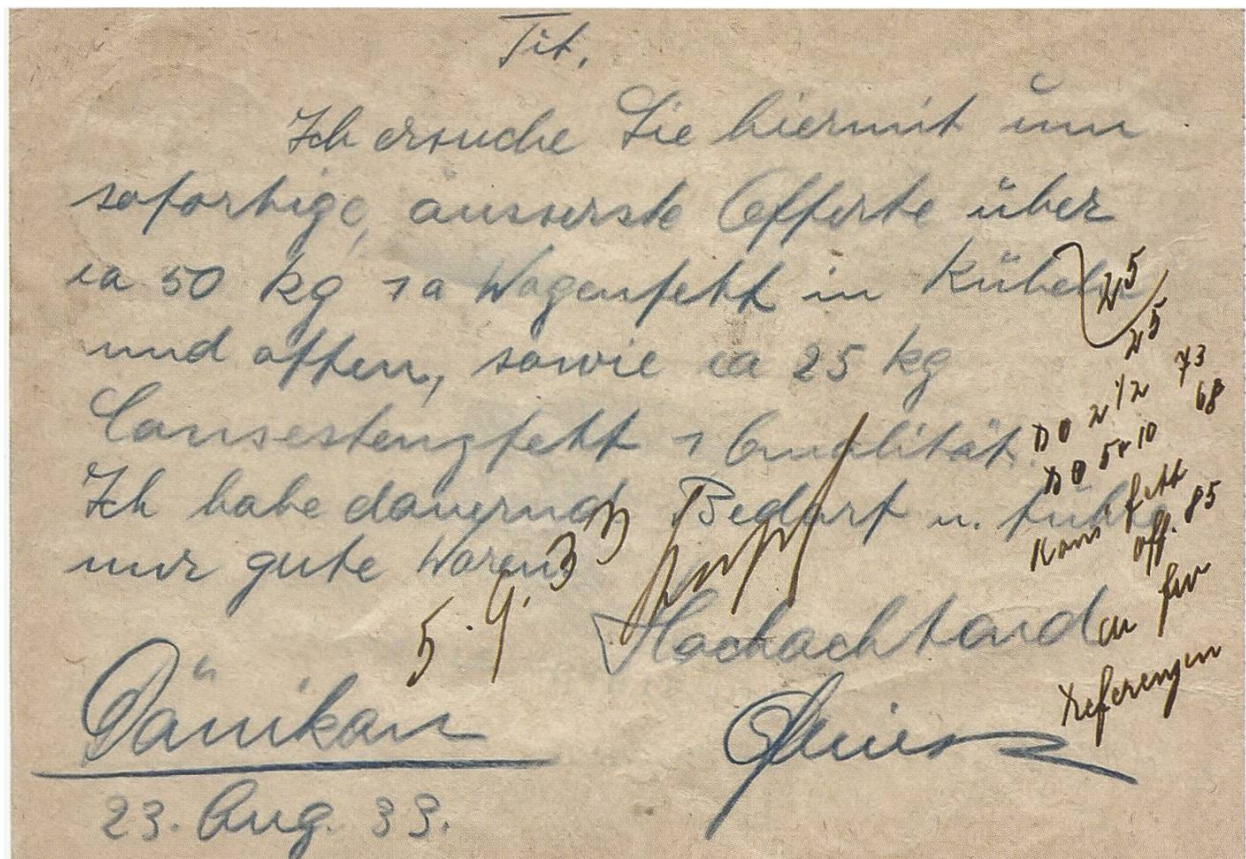 Tit.
Ich ersuche Sie hiermit um
sofortige, äusserste Offerte über
ca 50 kg 1a Wagenfett in Kübeln
und offen, sowie ca 25 kg
1 Qualität.
Ich habe dauernd Bedarf u. führe
nur gute Waren.
Hochachtend
Däniken
23. Aug. 33.
5.9.33
25
25
DO 2 1/2 73
DO 5+10 68
Kons' fett
off. 85
Referenzen